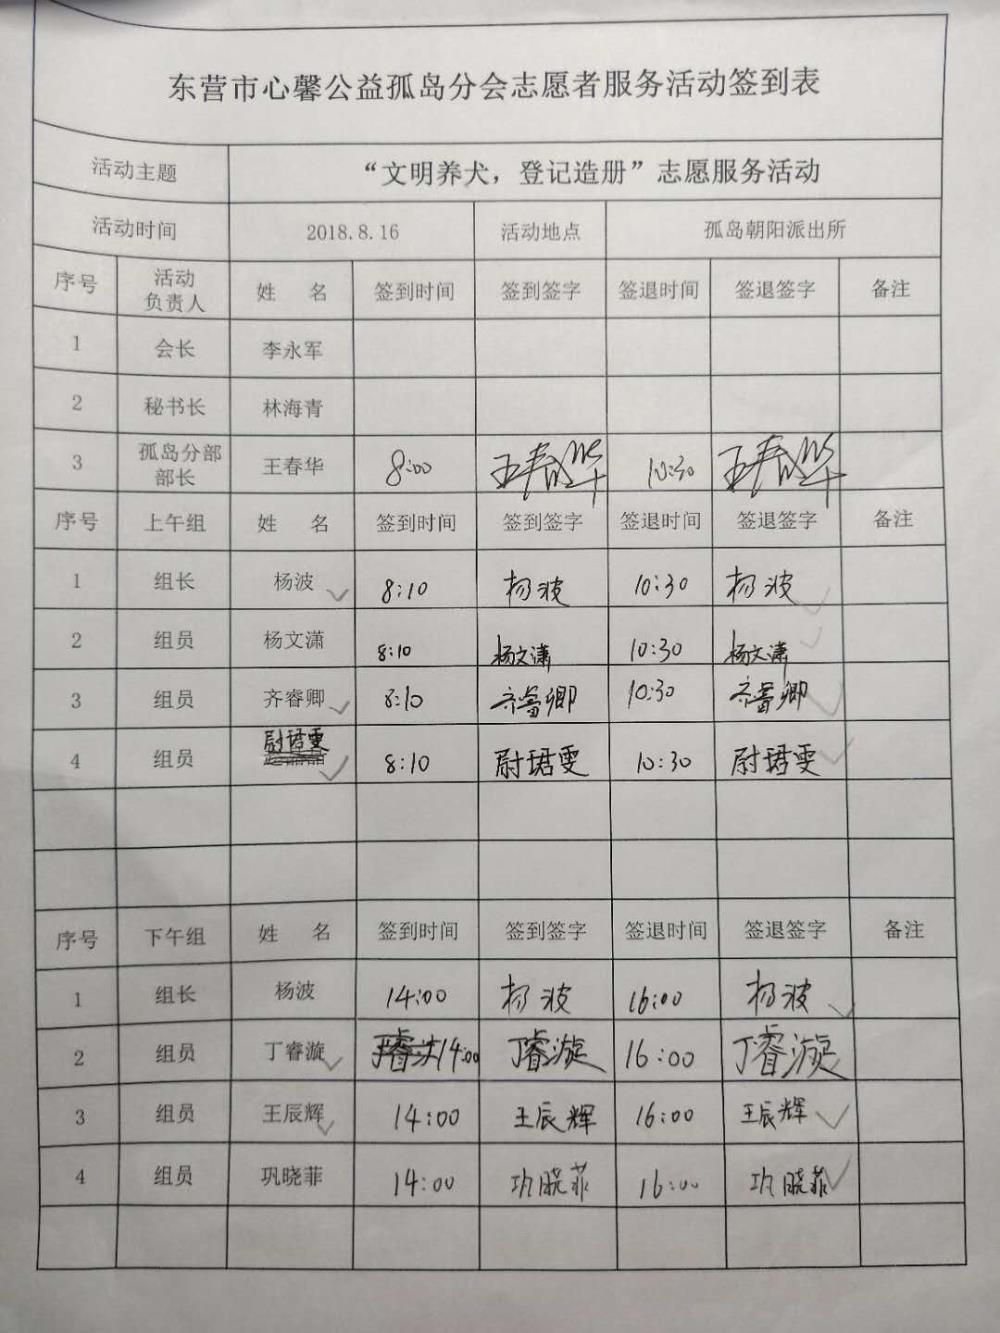 东营市心馨公益孤岛分会志愿者服务活动签到表
活动主题 “文明养犬，登记造册”志愿服务活动
活动时间 2018.8.16 活动地点 孤岛朝阳派出所
序号 活动负责人 姓 名 签到时间 签到签字 签退时间 签退签字 备注
1 会长 李永军
2 秘书长 林海青
3 孤岛分部部长 王春华 8:00 王春华 10:30 王春华
序号 上午组 姓 名 签到时间 签到签字 签退时间 签退签字 备注
1 组长 杨波 8:10 杨波 10:30 杨波
2 组员 杨文潇 8:10 杨文潇 10:30 杨文潇
3 组员 齐睿卿 8:10 齐睿卿 10:30 齐睿卿
4 组员 尉珺雯 8:10 尉珺雯 10:30 尉珺雯
序号 下午组 姓 名 签到时间 签到签字 签退时间 签退签字 备注
1 组长 杨波 14:00 杨波 16:00 杨波
2 组员 丁睿漩 14:00 丁睿漩 16:00 丁睿漩
3 组员 王辰辉 14:00 王辰辉 16:00 王辰辉
4 组员 巩晓菲 14:00 巩晓菲 16:00 巩晓菲